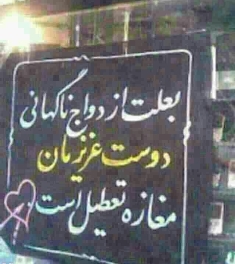 بعلت ازدواج ناگهانی
دوست عزیزمان
مغازه تعطیل است